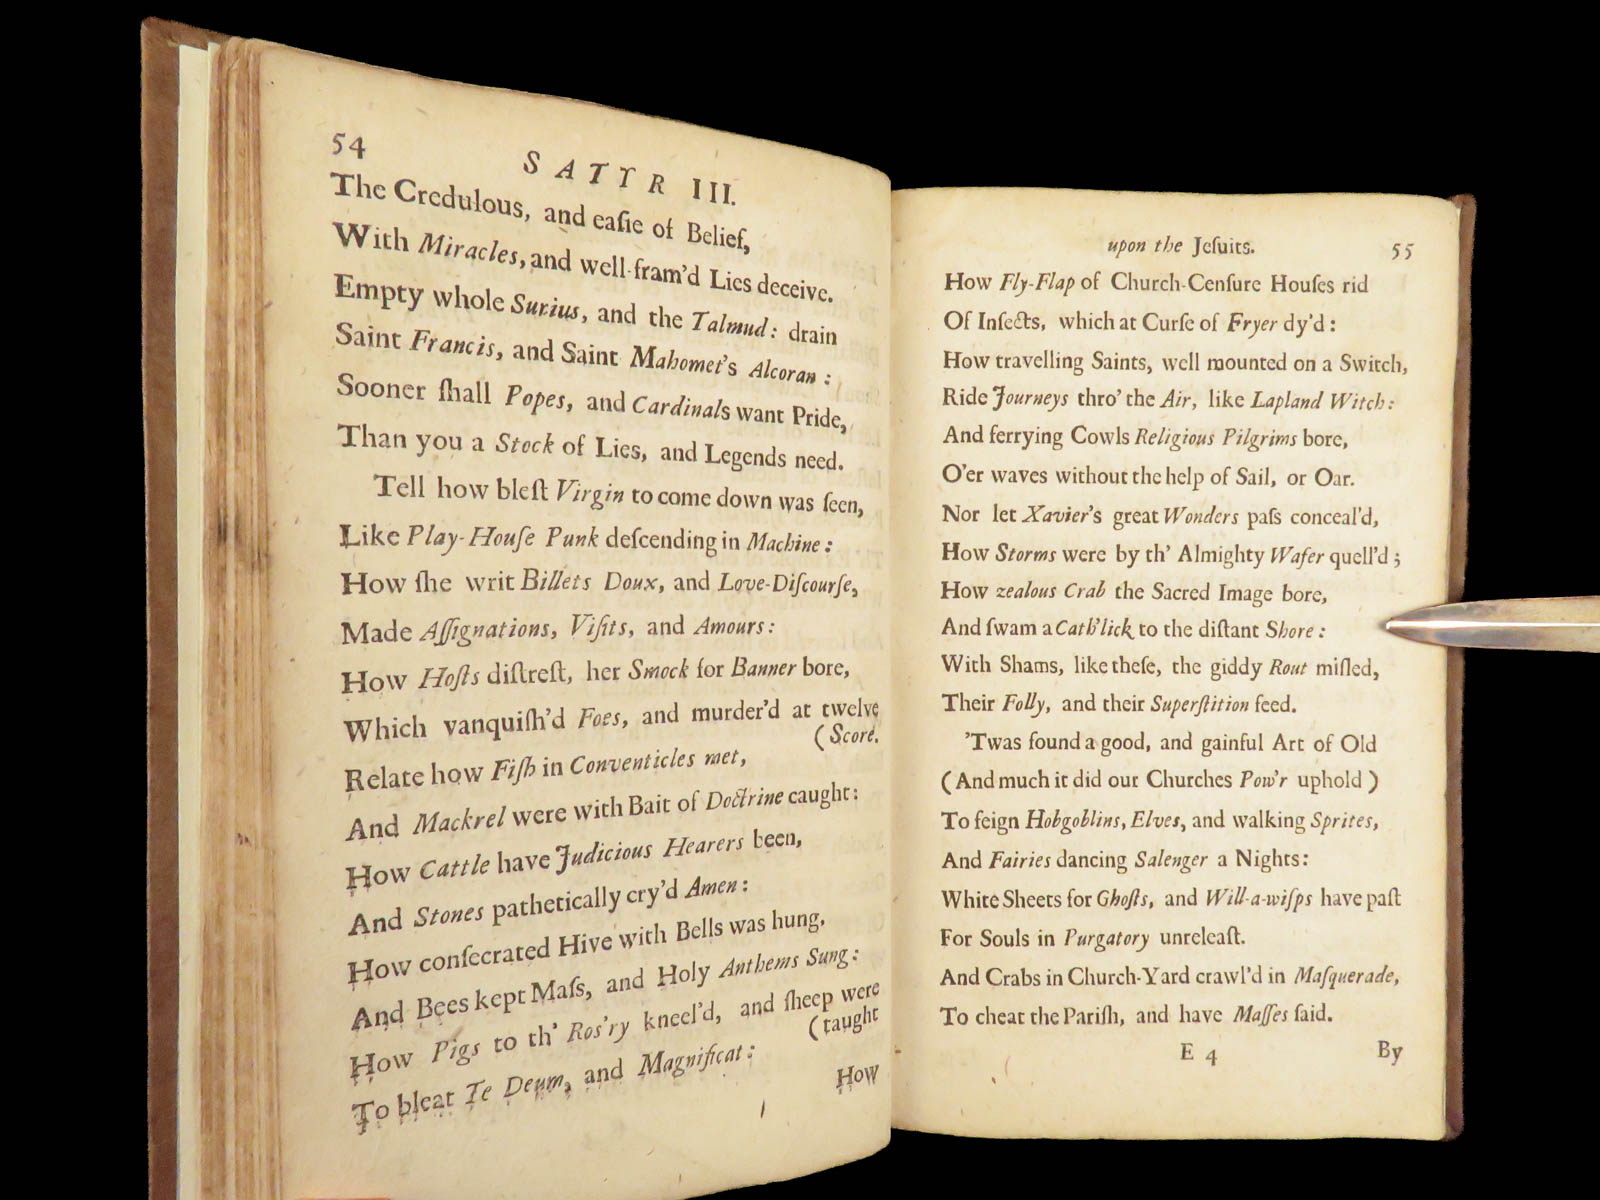 54
SATYR III.
The Credulous, and eaſie of Belief,
With Miracles, and well-fram'd Lies deceive.
Empty whole Surius, and the Talmud: drain
Saint Francis, and Saint Mahomet's Alcoran:
Sooner ſhall Popes, and Cardinals want Pride,
Than you a Stock of Lies, and Legends need.
Tell how bleſt Virgin to come down was ſeen,
Like Play-Houſe Punk deſcending in Machine:
How ſhe writ Billets Doux, and Love-Diſcourſe,
Made Aſſignations, Viſits, and Amours:
How Hoſts diſtreſt, her Smock for Banner bore,
Which vanquiſh'd Foes, and murder'd at twelve
(Score.
Relate how Fiſh in Conventicles met,
And Mackrel were with Bait of Doctrine caught:
How Cattle have Judicious Hearers been,
And Stones pathetically cry'd Amen:
How conſecrated Hive with Bells was hung,
And Bees kept Maſs, and Holy Anthems Sung:
How Pigs to th' Roſ'ry kneel'd, and ſheep were
(taught
To bleat Te Deum, and Magnificat:
How
upon the Jeſuits.
55
How Fly-Flap of Church-Cenſure Houſes rid
Of Inſects, which at Curſe of Fryer dy'd:
How travelling Saints, well mounted on a Switch,
Ride Journeys thro' the Air, like Lapland Witch:
And ferrying Cowls Religious Pilgrims bore,
O'er waves without the help of Sail, or Oar.
Nor let Xavier's great Wonders paſs conceal'd,
How Storms were by th' Almighty Wafer quell'd;
How zealous Crab the Sacred Image bore,
And ſwam a Cath'lick to the diſtant Shore:
With Shams, like theſe, the giddy Rout miſled,
Their Folly, and their Superſtition feed.
'Twas found a good, and gainful Art of Old
(And much it did our Churches Pow'r uphold)
To feign Hobgoblins, Elves, and walking Sprites,
And Fairies dancing Salenger a Nights:
White Sheets for Ghoſts, and Will-a-wiſps have paſt
For Souls in Purgatory unreleaſt.
And Crabs in Church-Yard crawl'd in Maſquerade,
To cheat the Pariſh, and have Maſſes ſaid.
E 4
By